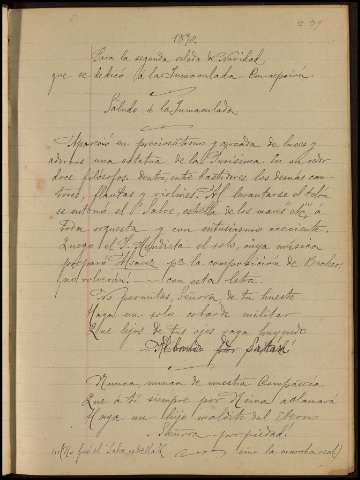 239
1892
Para la segunda velada de Navidad,
que se dedicó á la Inmaculada Concepción
Saludo á la Inmaculada
Apareció en preciosísimo y cercada de luces y
adornos una estatua de la Purísima. En un coro
doce filósofos dentro, entre bastidores los demás can-
tores, flautas y violines. Al levantarse el telón
se entonó el "Salve, estrella de los mares" &c, a
toda orquesta y con entusiasmo creciente.
Luego el P. Mendieta el solo, cuya música
preparó para la composición de
con esta letra.
No permitas, Señora, de tu hueste
Haya un solo cobarde militar
Que lejos de tus ojos vaya huyendo
por Satán
Nunca nunca de nuestra Compañía
Que á ti siempre por Reina aclamará
Haya un hijo maldito del Eterno
Señora por piedad.
(como la marcha real)